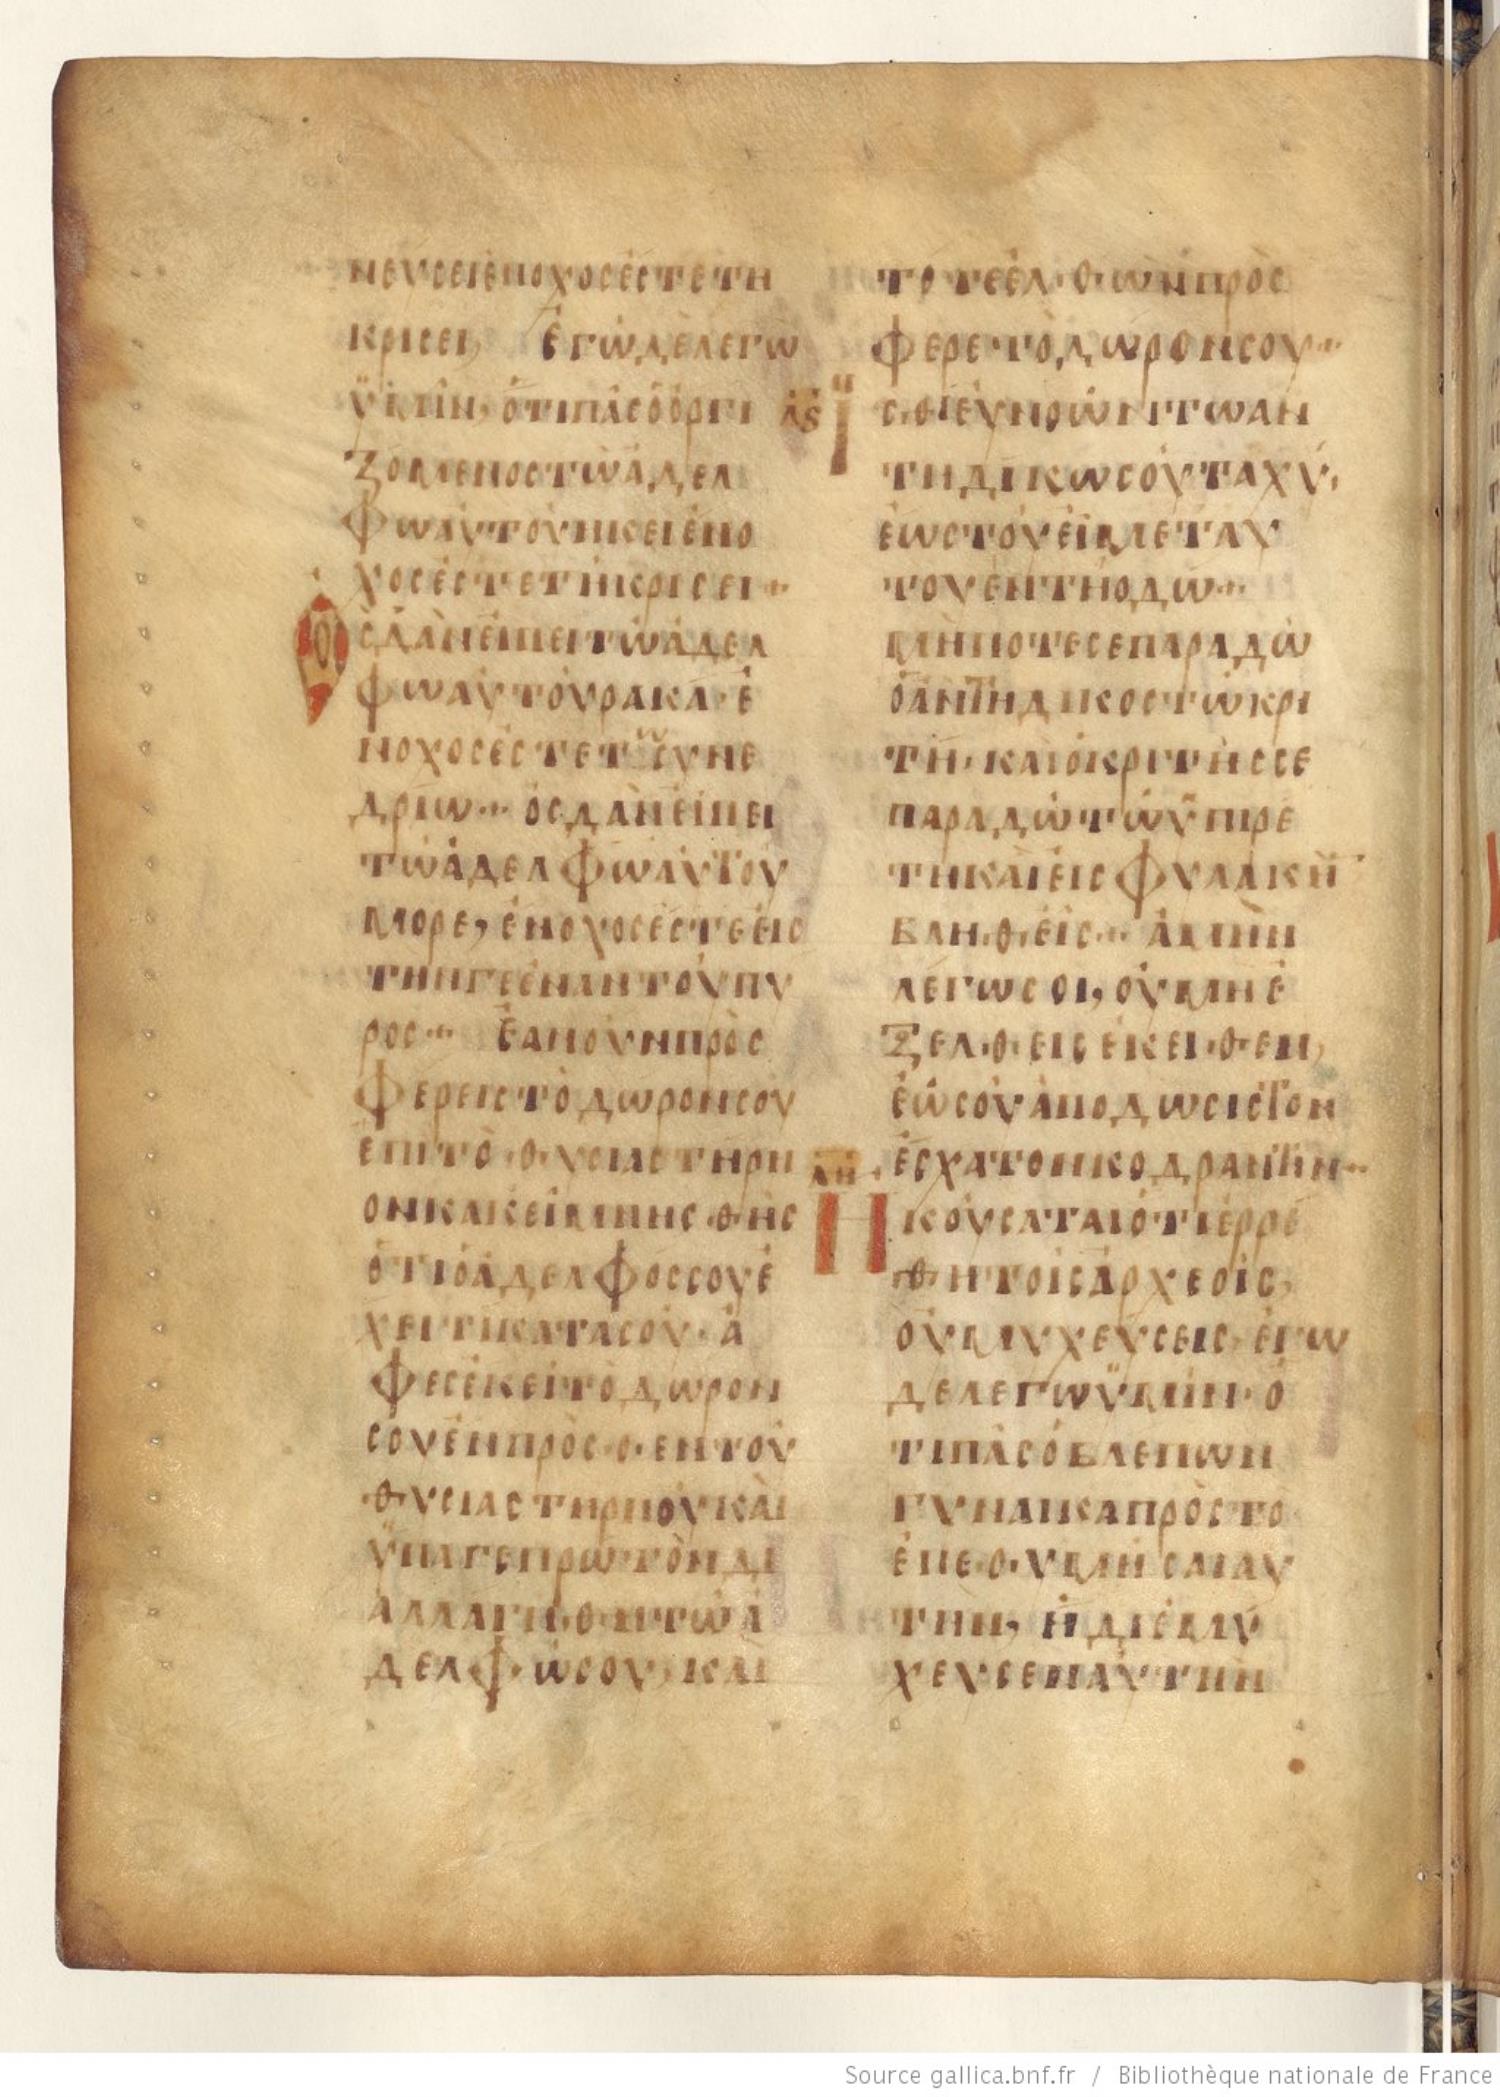 ΝΕΥΣΕΙΕΝΟΧΟΣΕΣΤΕΤΗ
ΚΡΙΣΕΙ, ΕΓΩΔΕΛΕΓΩ
ΫΜΙΝ, ΟΤΙΠΑΣΟΟΡΓΙ
ΖΟΜΕΝΟΣΤΩΑΔΕΛ
ΦΩΑΥΤΟΥΗΚΕΙΕΝΟ
ΧΟΣΕΣΤΕΤΗΚΡΙΣΕΙ··
ΟΣΔΑΝΕΙΠΕΙΤΩΑΔΕΛ
ΦΩΑΥΤΟΥΡΑΚΑ·Ε
ΝΟΧΟΣΕΣΤΕΤΩΣΥΝΕ
ΔΡΙΩ·· ΟΣΔΑΝΕΙΠΕΙ
ΤΩΑΔΕΛΦΩΑΥΤΟΥ
ΜΟΡΕ, ΕΝΟΧΟΣΕΣΤΕΕΙΣ
ΤΗΝΓΕΕΝΑΝΤΟΥΠΥ
ΡΟΣ·· ΕΑΝΟΥΝΠΡΟΣ
ΦΕΡΕΙΣΤΟΔΩΡΟΝΣΟΥ
ΕΠΙΤΟΘΥΣΙΑΣΤΗΡΙ
ΟΝΚΑΚΕΙΜΝΗΣΘΗΣ
ΟΤΙΟΑΔΕΛΦΟΣΣΟΥΕ
ΧΕΙΤΙΚΑΤΑΣΟΥ·Α
ΦΕΣΕΚΕΙΤΟΔΩΡΟΝ
ΣΟΥΕΝΠΡΟΣΘΕΝΤΟΥ
ΘΥΣΙΑΣΤΗΡΙΟΥΚΑΙ
ΫΠΑΓΕΠΡΩΤΟΝΔΙ
ΑΛΛΑΓΗΘΗΤΩΑ
ΔΕΛΦΩΣΟΥ, ΚΑΙ
ΤΟΤΕΕΛΘΩΝΠΡΟΣ
ΦΕΡΕΤΟΔΩΡΟΝΣΟΥ··
ΛϚ ΪΣΘΙΕΥΝΟΩΝΤΩΑΝ
ΤΗΔΙΚΩΣΟΥΤΑΧΥ,
ΕΩΣΤΟΥΕΙΜΕΤΑΥ
ΤΟΥΕΝΤΗΟΔΩ··
ΜΗΠΟΤΕΣΕΠΑΡΑΔΩ
ΟΑΝΤΗΔΙΚΟΣΤΩΚΡΙ
ΤΗ·ΚΑΙΟΚΡΙΤΗΣΣΕ
ΠΑΡΑΔΩΤΩΫΠΙΡΕ
ΤΗΚΑΙΕΙΣΦΥΛΑΚΗΝ
ΒΛΗΘΕΙΣ·· ΑΜΗΝ
ΛΕΓΩΣΟΙ, ΟΥΜΗΕ
ΞΕΛΘΕΙΣΕΚΕΙΘΕΝ,
ΕΩΣΟΥΑΠΟΔΩΣΙΣΤΟΝ
ΕΣΧΑΤΟΝΚΟΔΡΑΝΤΗΝ··
ΛΗ ΗΚΟΥΣΑΤΑΙΟΤΙΕΡΡΕ
ΘΗΤΟΙΣΑΡΧΕΟΙΣ,
ΟΥΜΥΧΕΥΣΕΙΣ·ΕΓΩ
ΔΕΛΕΓΩΫΜΙΝ·Ο
ΤΙΠΑΣΟΒΛΕΠΩΝ
ΓΥΝΑΙΚΑΠΡΟΣΤΟ
ΕΠΕΘΥΜΗΣΑΙΑΥ
ΤΗΝ, ΗΔΙΕΜΥ
ΧΕΥΣΕΝΑΥΤΗΝ
Source gallica.bnf.fr / Bibliothèque nationale de France